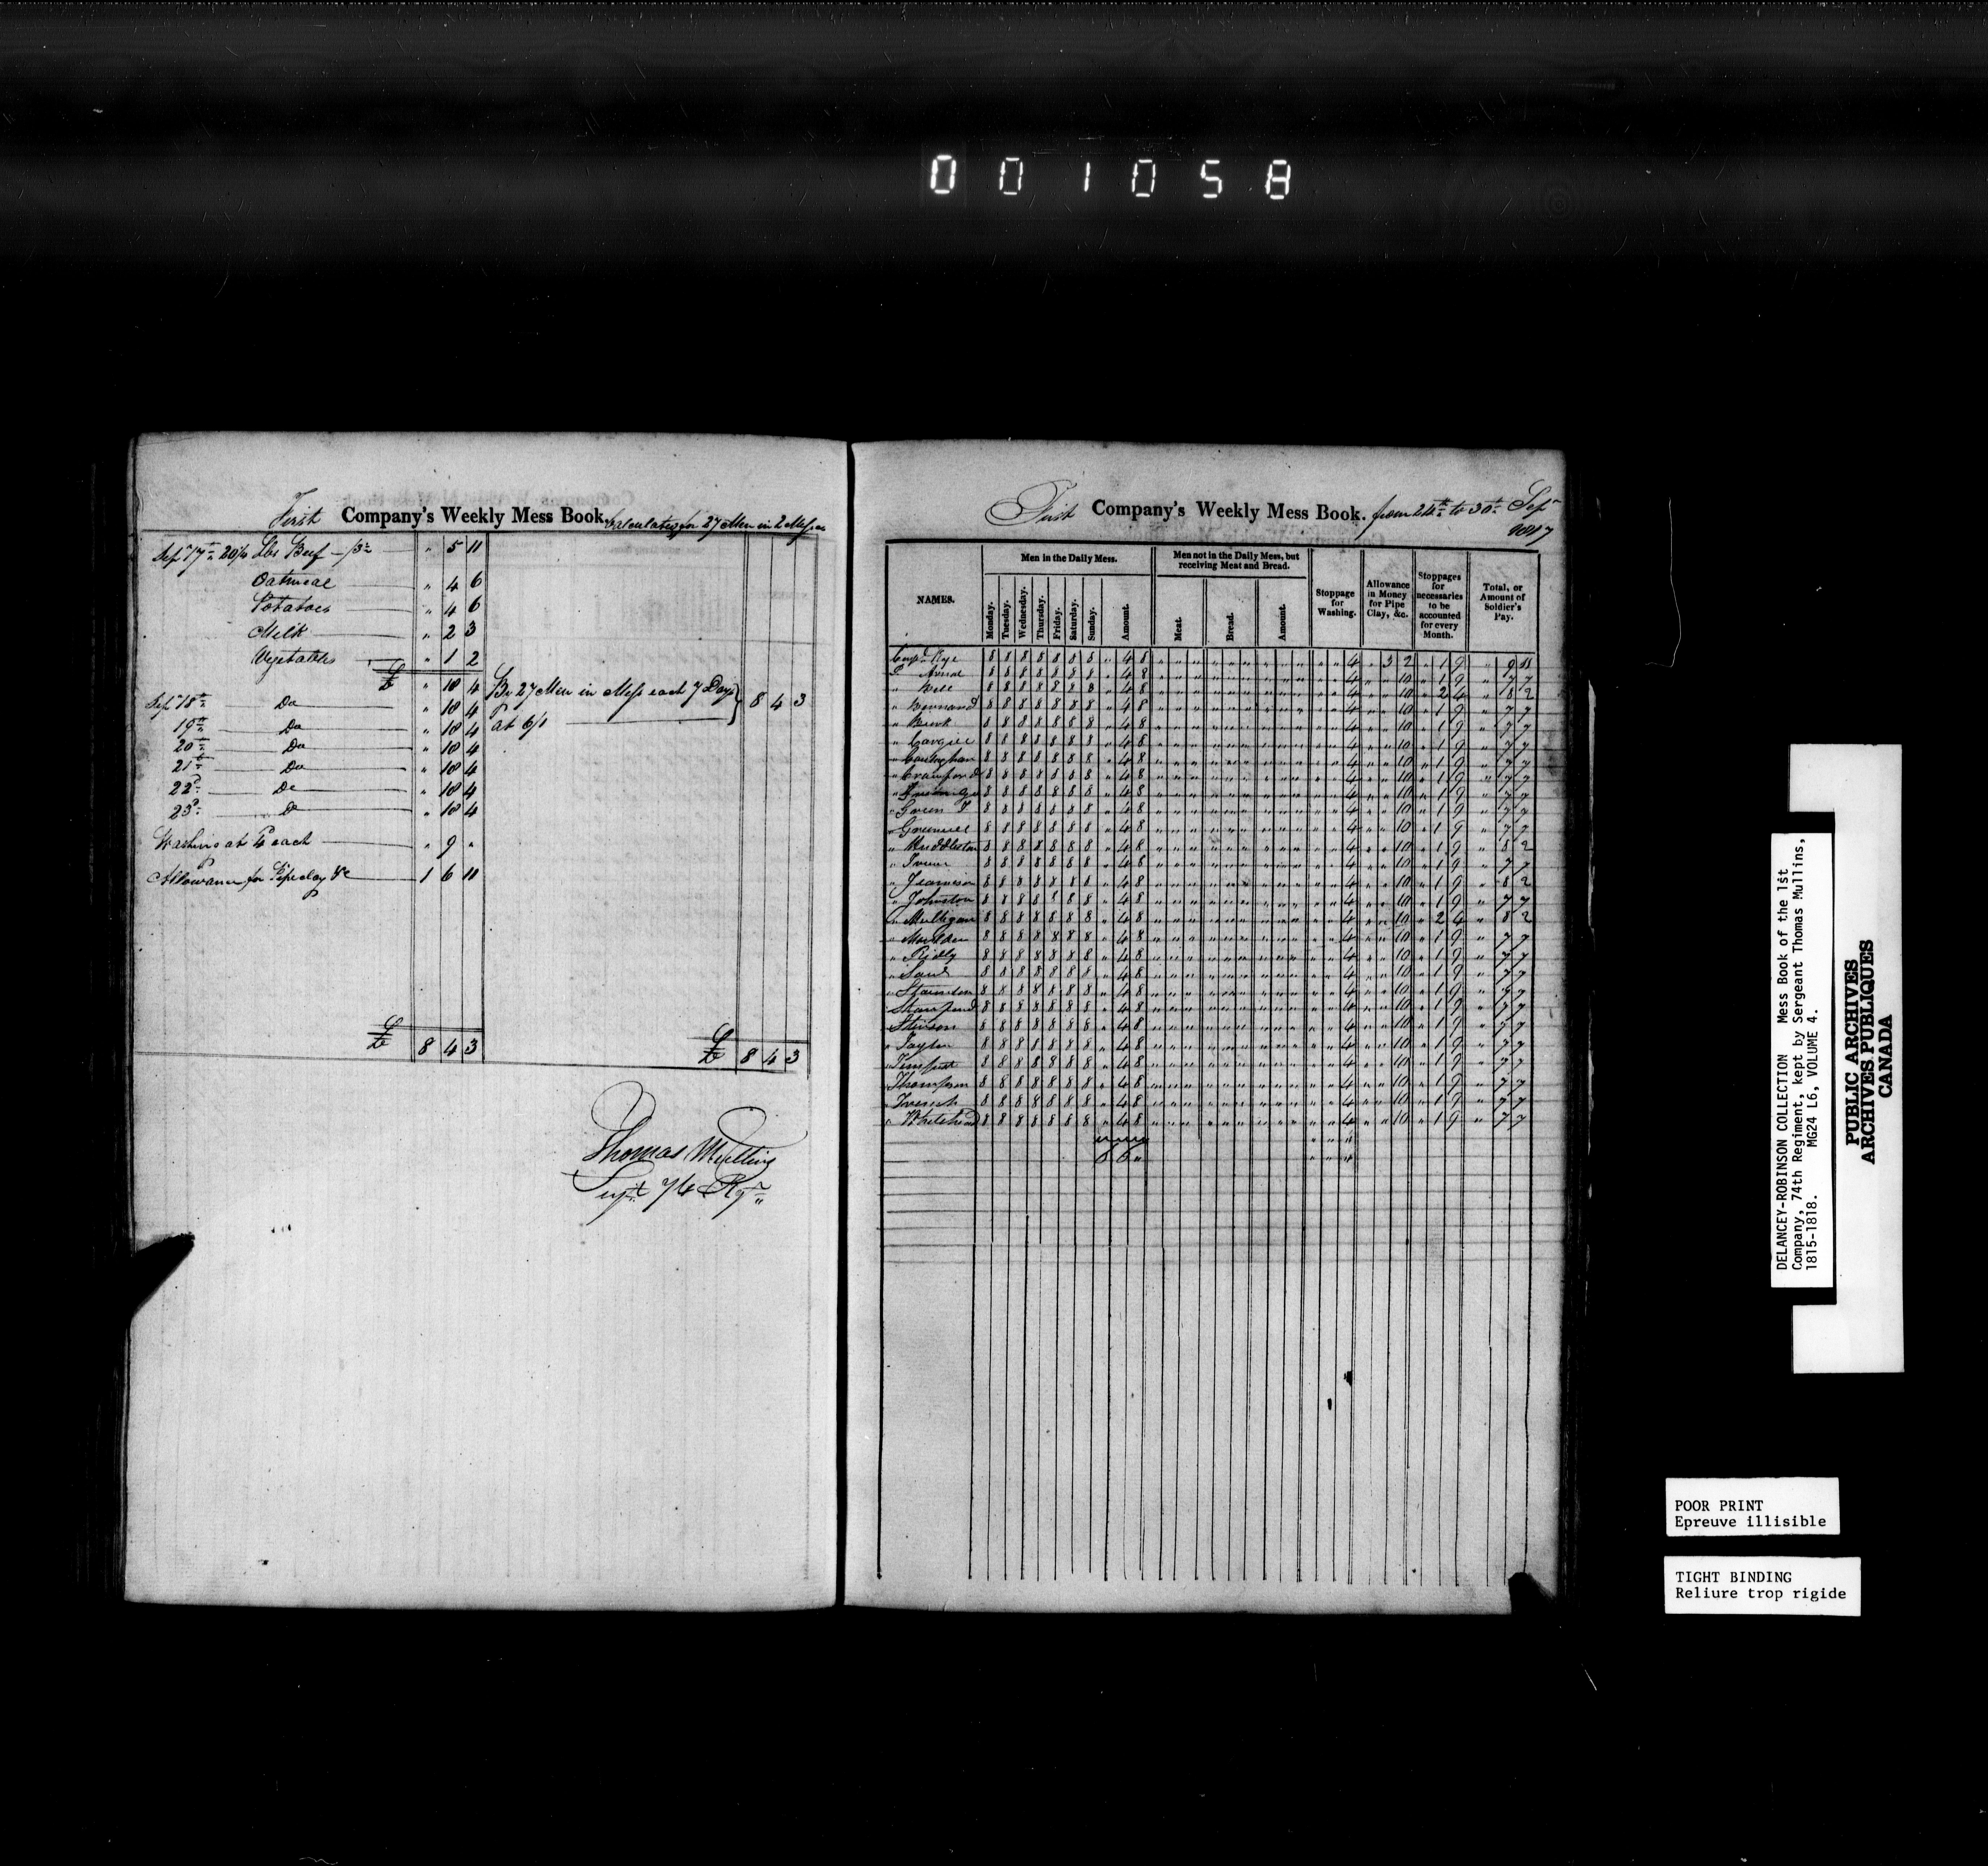 0 0 1 0 5 8
First Company's Weekly Mess Book. Calculated for 27 Men in 2 Messes
Sepr 17th 20¼ Lbs Beef - /3½ " 5 11
Oatmeal " 4 6
Potatoes " 4 6
Milk " 2 3
Vegetables " 1 2
£ " 18 4
Sepr 18th Do " 18 4
19th Do " 18 4
20th Do " 18 4
21st Do " 18 4
22d Do " 18 4
23d Do " 18 4
Washing at 4d each " 9 "
Allowance for Pipeclay &c 1 6 11
£ 8 4 3
By 27 Men in Mess each 7 Days
at 6/1 8 4 3
£ 8 4 3
Thomas Mullins
Serjt 74th Regt
First Company's Weekly Mess Book. from 24th to 30th Sepr
1817
NAMES.
Men in the Daily Mess.
Monday. Tuesday. Wednesday. Thursday. Friday. Saturday. Sunday. Amount.
Men not in the Daily Mess, but
receiving Meat and Bread.
Meat. Bread. Amount.
Stoppage
for
Washing.
Allowance
in Money
for Pipe
Clay, &c.
Stoppages
for
necessaries
to be
accounted
for every
Month.
Total, or
Amount of
Soldier's
Pay.
Corpl Kye 8 8 8 8 8 8 8 " 4 8 " " " " " " " " " " " 4 " 3 2 " 1 9 " 9 11
P Avrial 8 8 8 8 8 8 8 " 4 8 " " " " " " " " " " " 4 " " 10 " 1 9 " 7 7
" Bell 8 8 8 8 8 8 8 " 4 8 " " " " " " " " " " " 4 " " 10 " 2 4 " 8 2
" Bernard 8 8 8 8 8 8 8 " 4 8 " " " " " " " " " " " 4 " " 10 " 1 9 " 7 7
" Burk 8 8 8 8 8 8 8 " 4 8 " " " " " " " " " " " 4 " " 10 " 1 9 " 7 7
" Cargill 8 8 8 8 8 8 8 " 4 8 " " " " " " " " " " " 4 " " 10 " 1 9 " 7 7
8 8 8 8 8 8 8 " 4 8 " " " " " " " " " " " 4 " " 10 " 1 9 " 7 7
" Crawford 8 8 8 8 8 8 8 " 4 8 " " " " " " " " " " " 4 " " 10 " 1 9 " 7 7
8 8 8 8 8 8 8 " 4 8 " " " " " " " " " " " 4 " " 10 " 1 9 " 7 7
" Green T 8 8 8 8 8 8 8 " 4 8 " " " " " " " " " " " 4 " " 10 " 1 9 " 7 7
" 8 8 8 8 8 8 8 " 4 8 " " " " " " " " " " " 4 " " 10 " 1 9 " 7 7
" Huddleston 8 8 8 8 8 8 8 " 4 8 " " " " " " " " " " " 4 " " 10 " 1 9 " 8 2
" 8 8 8 8 8 8 8 " 4 8 " " " " " " " " " " " 4 " " 10 " 1 9 " 7 7
" Jeamison 8 8 8 8 8 8 8 " 4 8 " " " " " " " " " " " 4 " " 10 " 1 9 " 8 2
" Johnston 8 8 8 8 8 8 8 " 4 8 " " " " " " " " " " " 4 " " 10 " 1 9 " 7 7
" Mulligan 8 8 8 8 8 8 8 " 4 8 " " " " " " " " " " " 4 " " 10 " 2 4 " 8 2
" 8 8 8 8 8 8 8 " 4 8 " " " " " " " " " " " 4 " " 10 " 1 9 " 7 7
" Ridly 8 8 8 8 8 8 8 " 4 8 " " " " " " " " " " " 4 " " 10 " 1 9 " 7 7
" 8 8 8 8 8 8 8 " 4 8 " " " " " " " " " " " 4 " " 10 " 1 9 " 7 7
" 8 8 8 8 8 8 8 " 4 8 " " " " " " " " " " " 4 " " 10 " 1 9 " 7 7
" 8 8 8 8 8 8 8 " 4 8 " " " " " " " " " " " 4 " " 10 " 1 9 " 7 7
" Stinson 8 8 8 8 8 8 8 " 4 8 " " " " " " " " " " " 4 " " 10 " 1 9 " 7 7
" 8 8 8 8 8 8 8 " 4 8 " " " " " " " " " " " 4 " " 10 " 1 9 " 7 7
" Tempest 8 8 8 8 8 8 8 " 4 8 " " " " " " " " " " " 4 " " 10 " 1 9 " 7 7
" Thompson 8 8 8 8 8 8 8 " 4 8 " " " " " " " " " " " 4 " " 10 " 1 9 " 7 7
" 8 8 8 8 8 8 8 " 4 8 " " " " " " " " " " " 4 " " 10 " 1 9 " 7 7
" Whitehead 8 8 8 8 8 8 8 " 4 8 " " " " " " " " " " " 4 " " 10 " 1 9 " 7 7
6 6 "
DELANCEY-ROBINSON COLLECTION Mess Book of the 1st
Company, 74th Regiment, kept by Sergeant Thomas Mullins,
1815-1818. MG24 L6, VOLUME 4.
PUBLIC ARCHIVES
ARCHIVES PUBLIQUES
CANADA
POOR PRINT
Epreuve illisible
TIGHT BINDING
Reliure trop rigide